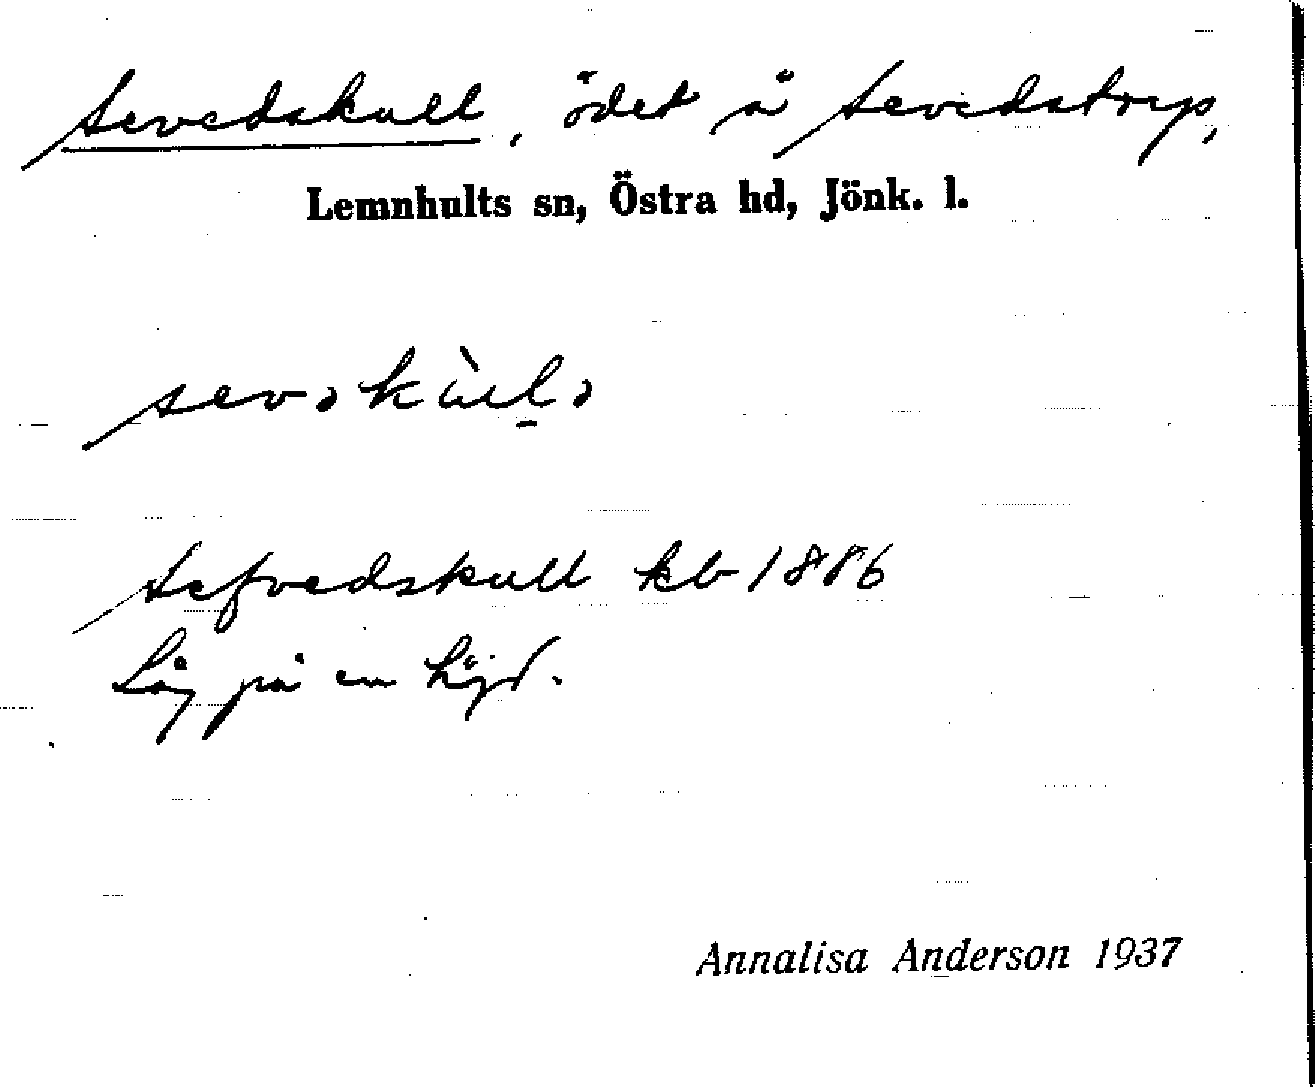 Sevedskull, ödet å Sevedstorp,
Lemnhults sn, Östra hd, Jönk. l.
Sefvedskull kb 1886
Låg på en höjd.
Annalisa Anderson 1937